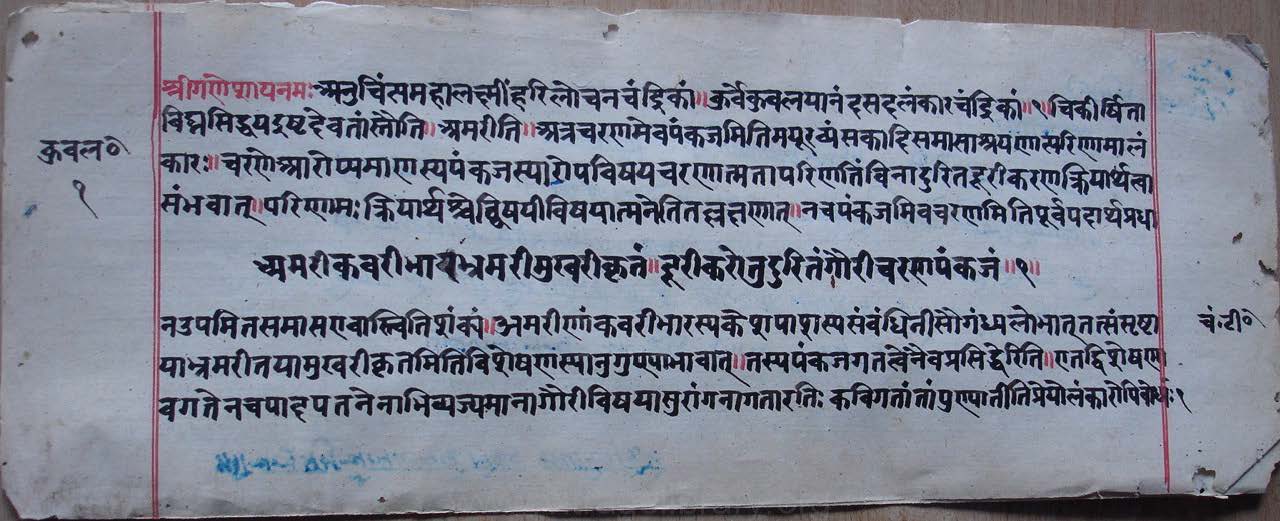 श्रीगणेशायनमः अनुचिंसमहालक्ष्मींहरिलोचनचंद्रिकां॥ कुर्वेकुवलयानंदसदलंकारचंद्रिकां॥१चिकीर्षिता
विघ्नसिद्धयइष्टदेवतांस्तौति॥ अमरीति॥ अत्रचरणमेवपंकजमितिमयूरव्यंसकादिसमासाश्रयणात्परिणामालं
कुवल॰
कारः॥ चरणेआरोप्यमाणस्यपंकजस्यारोपविषयचरणात्मतापरिणतिंविनादुरितदूरीकरणक्रियार्थत्वा
१
संभवात्॥परिणामःक्रियार्थश्चेद्विषयीविषयात्मनेतितल्लक्षणात्॥नचपंकजमिवचरणमितिपूर्वपदार्थप्रधा
अमरीकबरीभारभ्रमरीमुखरीकृतं॥ दूरीकरोतुदुरितंगौरीचरणपंकजं॥१॥
नउपमितसमासएवास्त्वितिशंक्यं॥अमरीणांकबरीभारस्यकेशपाशस्यसंबंधिनीसौगंध्यलोभात्तत्संसृष्टा
चं॰टी॰
याभ्रमरीतयामुखरीकृतमितिविशेषणस्यानुगुण्याभावात्॥तस्यपंकजगतत्वेनैवप्रसिद्धेरिति॥एतद्विशेषणा
वगतेनचपादपतनेनाभिव्यज्यमानागौरीविषयासुरांगनागतारतिः कविगतांतांपुष्णातीतिप्रेयोलंकारोपिबोध्यः१